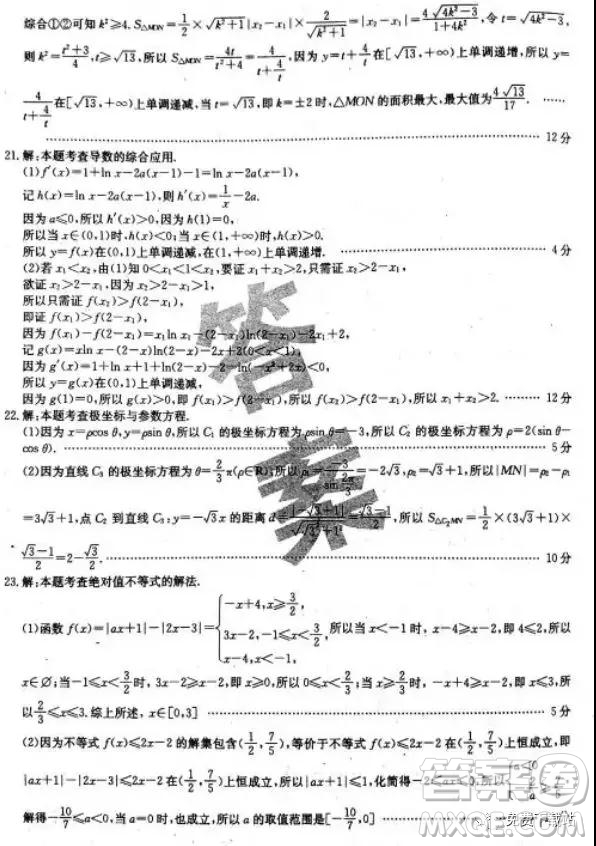 综合①②可知 k²≥4. S△MON=1/2×√(k²+1)|x₂-x₁|×2/√(k²+1)=|x₂-x₁|=4√(4k²-3)/(1+4k²), 令 t=√(4k²-3),
则 k²=(t²+3)/4, t≥√13, 所以 S△MON=4t/(t²+4)=4/(t+4/t), 因为 y=t+4/t 在[√13,+∞)上单调递增, 所以 y=
4/(t+4/t) 在[√13,+∞)上单调递减, 当 t=√13, 即 k=±2时, △MON 的面积最大, 最大值为 4√13/17. ……
…… 12分
21. 解:本题考查导数的综合应用.
(1)f′(x)=1+ln x-2a(x-1)-1=ln x-2a(x-1),
记 h(x)=ln x-2a(x-1), 则 h′(x)=1/x-2a.
因为 a≤0, 所以 h′(x)>0, 因为 h(1)=0,
所以当 x∈(0,1)时, h(x)<0; 当 x∈(1,+∞)时, h(x)>0,
所以 y=f(x)在(0,1)上单调递减, 在(1,+∞)上单调递增. …… 4分
(2)若 x₁<x₂, 由(1)知 0<x₁<1<x₂, 要证 x₁+x₂>2, 只需证 x₂>2-x₁,
欲证 x₂>2-x₁, 因为 x₂>1, 2-x₁>1,
所以只需证 f(x₂)>f(2-x₁),
即证 f(x₁)>f(2-x₁),
因为 f(x₁)-f(2-x₁)=x₁ln x₁-(2-x₁)ln(2-x₁)-2x₁+2,
记 g(x)=xln x-(2-x)ln(2-x)-2x+2(0<x<1),
因为 g′(x)=1+ln x+1+ln(2-x)-2=ln(-x²+2x)<0,
所以 y=g(x)在(0,1)上单调递减,
因为 g(1)=0, 所以 g(x)>0, 即 f(x₁)>f(2-x₁), 所以 f(x₂)>f(2-x₁), 所以 x₁+x₂>2. …… 12分
22. 解:本题考查极坐标与参数方程.
(1)因为 x=ρcos θ, y=ρsin θ, 所以 C₁ 的极坐标方程为 ρsin θ=-3, 所以 C₂ 的极坐标方程为 ρ=2(sin θ-
cos θ). …… 5分
(2)因为直线 C₃ 的极坐标方程为 θ=2/3π(ρ∈R), 所以 ρ₁=-3/sin(2π/3)=-2√3, ρ₂=√3+1, 所以|MN|=ρ₂-ρ₁
=3√3+1, 点 C₂ 到直线 C₃: y=-√3x 的距离 d=|-√3+1|/√(√3²+1²)=(√3-1)/2, 所以 S△C₂MN=1/2×(3√3+1)×
(√3-1)/2=2-√3/2. …… 10分
23. 解:本题考查绝对值不等式的解法.
(1)函数 f(x)=|ax+1|-|2x-3|={-x+4, x≥3/2, 3x-2, -1≤x<3/2, x-4, x<-1, 所以当 x<-1时, x-4≥x-2, 即 4≤2, 所以
x∈∅; 当-1≤x<3/2时, 3x-2≥x-2, 即 x≥0, 所以 0≤x<3/2; 当 x≥3/2时, -x+4≥x-2, 即 x≤3, 所
以 3/2≤x≤3. 综上所述, x∈[0,3] …… 5分
(2)因为不等式 f(x)≤2x-2 的解集包含(1/2,7/5), 等价于不等式 f(x)≤2x-2 在(1/2,7/5)上恒成立, 即
|ax+1|-|2x-3|≤2x-2 在(1/2,7/5)上恒成立, 所以|ax+1|≤1, 化简得-2≤ax≤0, 所以{a<0, -2/a≥7/5
解得-10/7≤a<0, 当 a=0 时, 也成立, 所以 a 的取值范围是[-10/7,0]
答案